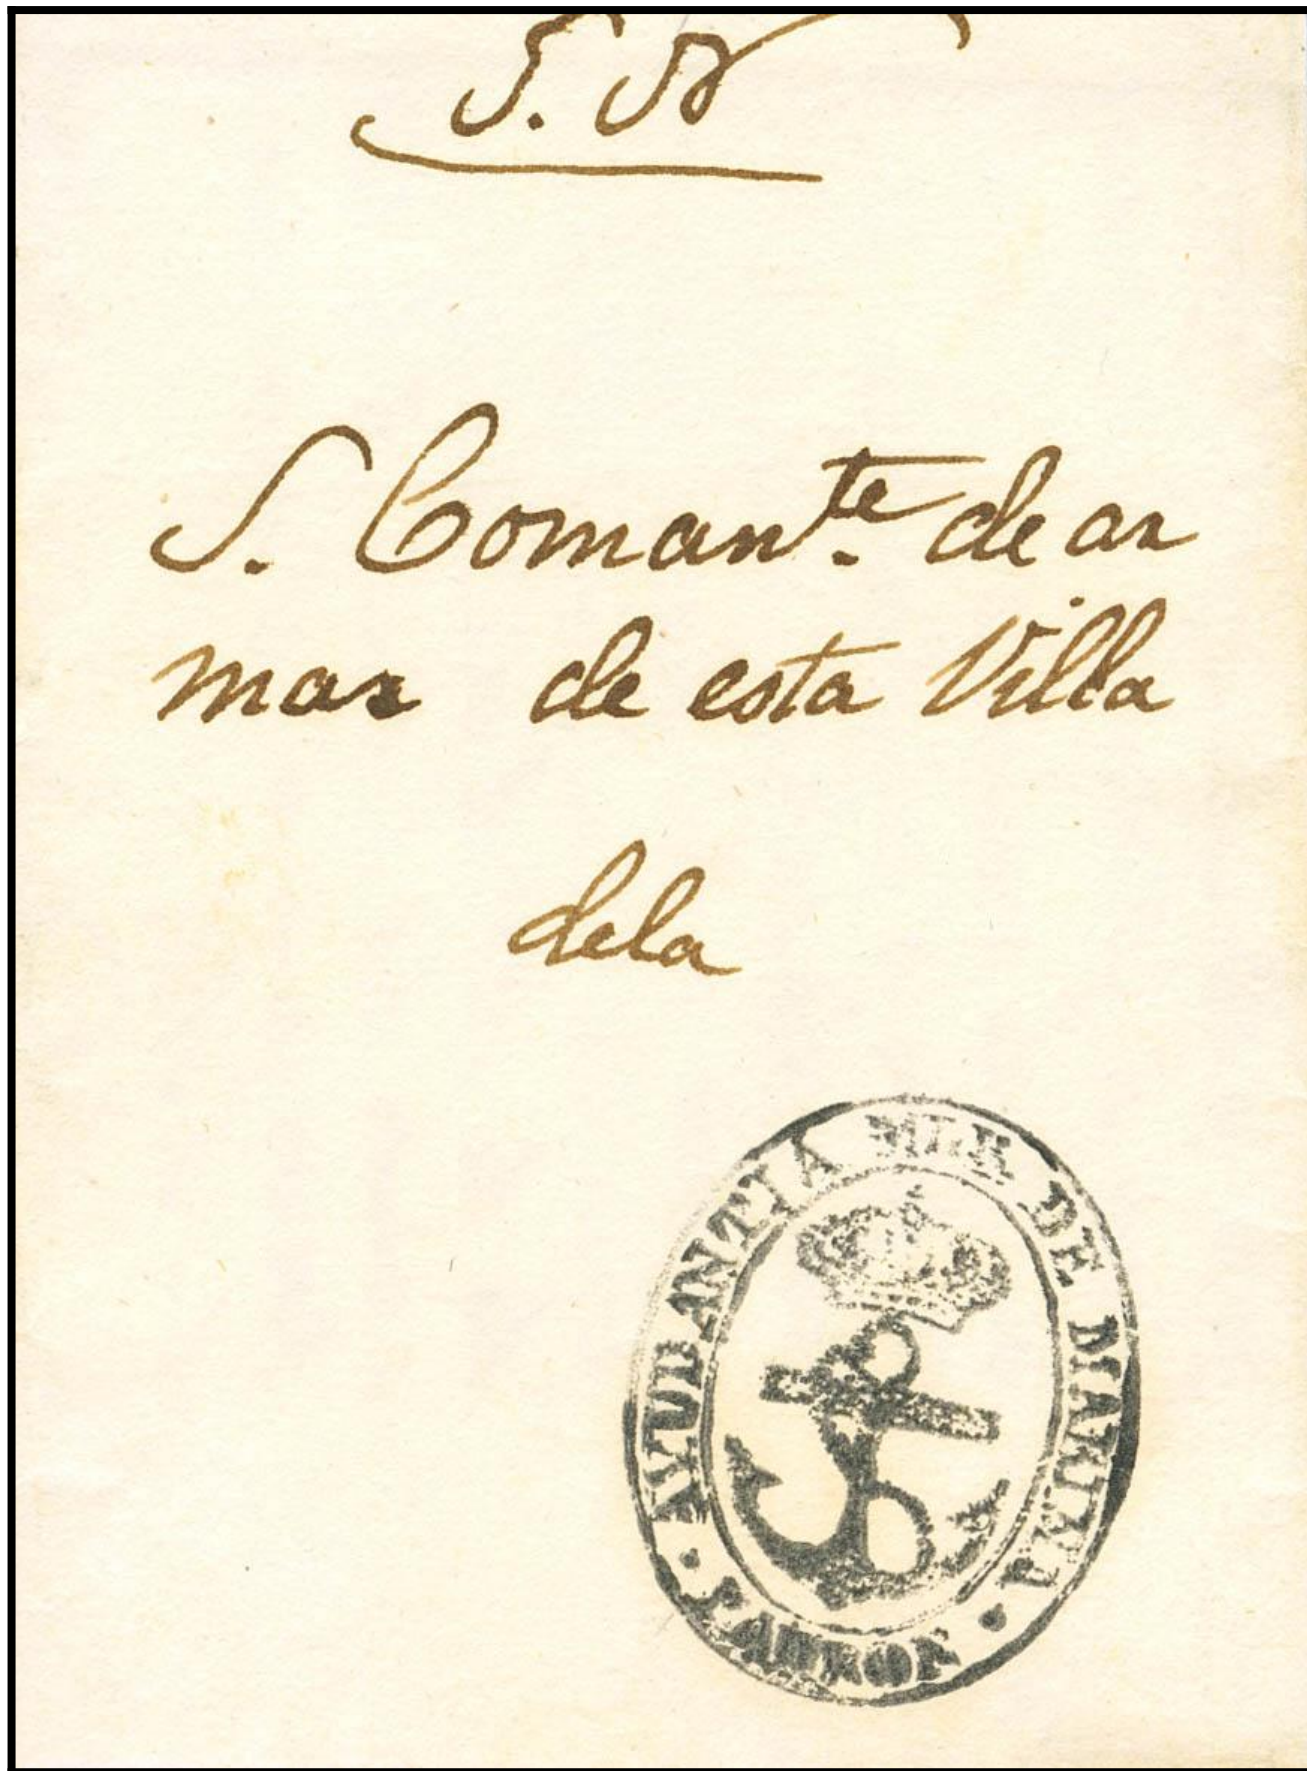 S. N
S. Coman.te de ar
mas de esta Villa
dela
AYUDANTIA MIL. DE MARINA
• PADRON •